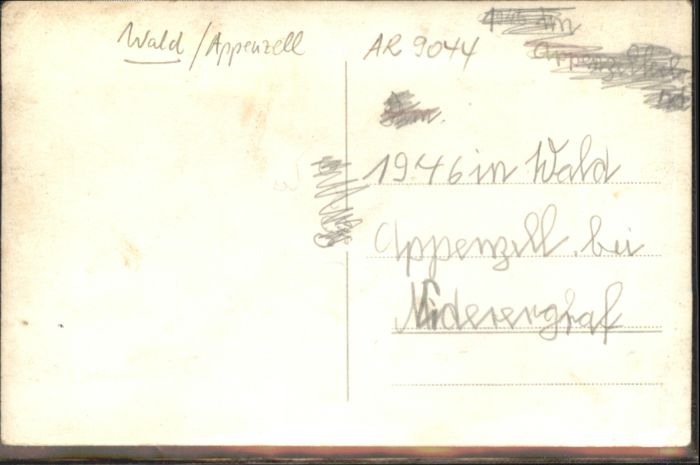 Wald / Appenzell
AR 9044
1946 in Wald
Appenzell. bei
Niderergraf